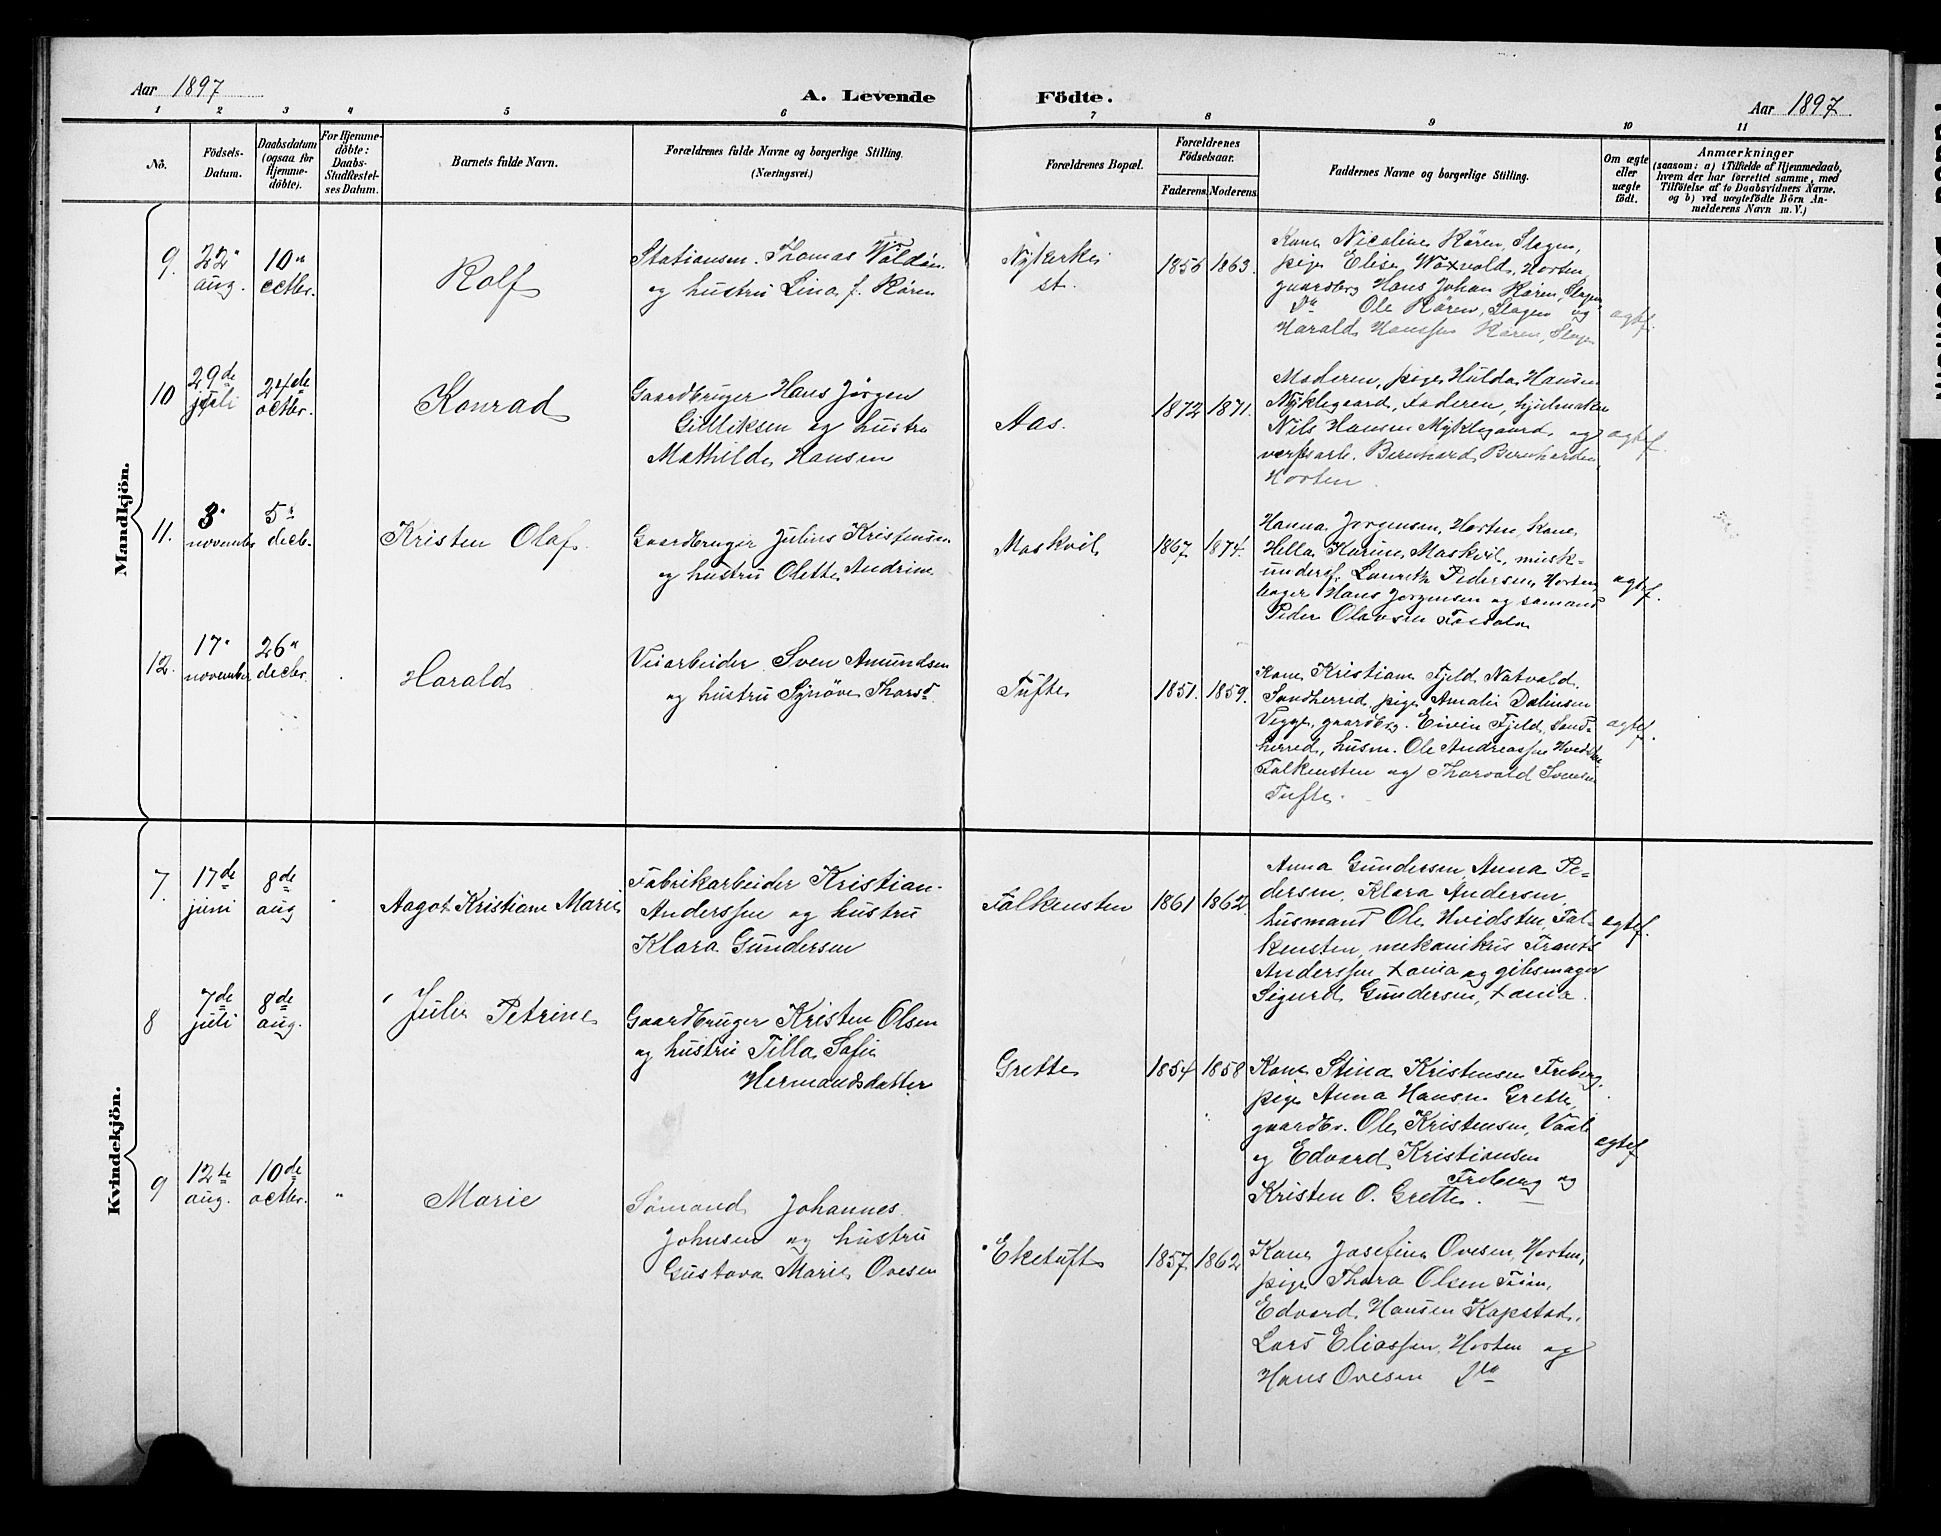 Aar 1897
A. Levende Födte.
Aar 1897
1 2 3 4 5 6 7 8 9 10 11
Nô.
Födsels-Datum.
Daabsdatum (ogsaa for Hjemmedöbte).
For Hjemmedöbte: Daabs-Stadfestelses Datum.
Barnets fulde Navn.
Forældrenes fulde Navne og borgerlige Stilling. (Næringsvei.)
Forældrenes Bopæl.
Forældrenes Födselsaar.
Faderens. Moderens.
Faddernes Navne og borgerlige Stilling.
Om ægte eller uægte födt.
Anmærkninger
(saasom: a) i Tilfælde af Hjemmedaab, hvem der har forrettet samme, med Tilföielse af to Daabsvidners Navne. og b) ved uægtefödte Börn Anmelderens Navn m. V.)
Mandkjön.
9. 22" aug. 10" octbr.
Rolf
Stationsm. Thomas
og hustru Lina f. Røren
Nykirke st.
1856 1863.
Kone Nicoline Røren, Slagen,
pige Elise Woxvold, Horten,
gaardbrg Hans Johan Røren, Slagen,
Do Ole Røren, Slagen og
Harald Hanssen Røren, Slagen
ægtef.
10 29de juli 24de octbr.
Konrad
Gaardbruger Hans Jørgen
Gulliksen og hustru
Mathilde Hansen
Aas.
1872 1871.
Moderen, pige Hulda Hansen
Myklegaard, Faderen, hjulmaker
Nils Hansen Myklegaard og
verfsarb. Bernhard Bernhardsen
Horten.
ægtef.
11. 3" november 5" decb.
Kristen Olaf.
Gaardbruger Julius Kristensen
og hustru Olette Andrine
Maskvil
1867 1874.
Hanna Jørgensen, Horten, Kone
Hella Karine Maskvil, musk-
undersf. Lauritz Pedersen, Horten
Hans Jørgensen og sømand
Peder Olavsen
ægtef.
12. 17" november 26" decbr.
Harald
Veiarbeider Sven Amundsen
og hustru Synøve Thorsd.
Tufte
1851. 1859.
Kone Kristiane Fjeld Natvald,
Sandherred, pige Amalie
gaardbrg. Eivin Fjeld, Sand-
herred, husm. Ole Andreassen Hvidsten
Falkensten og Thorvald Svensen
Tufte.
ægtef.
Kvindekjön.
7. 17de juni 8de aug
Aagot Kristiane Marie
Fabrikarbeider Kristian
Anderssen og hustru
Klara Gundersen
Falkensten
1861 1862.
Anna Gundersen, Anna Pe-
dersen, Klara Andersen,
husmand Ole Hvidsten, Fal-
kensten, mekanikus Frants
Anderssen, Xania og gibsmager
Sigurd Gundersen, Xania.
ægtef.
8 7de juli 8de aug.
Julie Petrine
Gaardbruger Kristen Olsen
og hustru Tilla Sofie
Hermandsdatter
Grette
1854 1858
Kone Stina Kristensen Freberg,
pige Anna Hansen Grette,
gaardbr. Ole Kristensen, Vaale
og Edvard Kristiansen
Freberg og
Kristen O. Grette.
ægtef
9 12te aug. 10de octbr. "
Marie
Sømand Johannes
Johnsen og hustru
Gustava Marie Ovesen
Eketuft
1857. 1862.
Kone Josefine Ovesen, Horten,
pige Thora Olsen
Edvard Hansen Kapstad,
Lars Eliassen, Horten og
Hans Ovesen Do